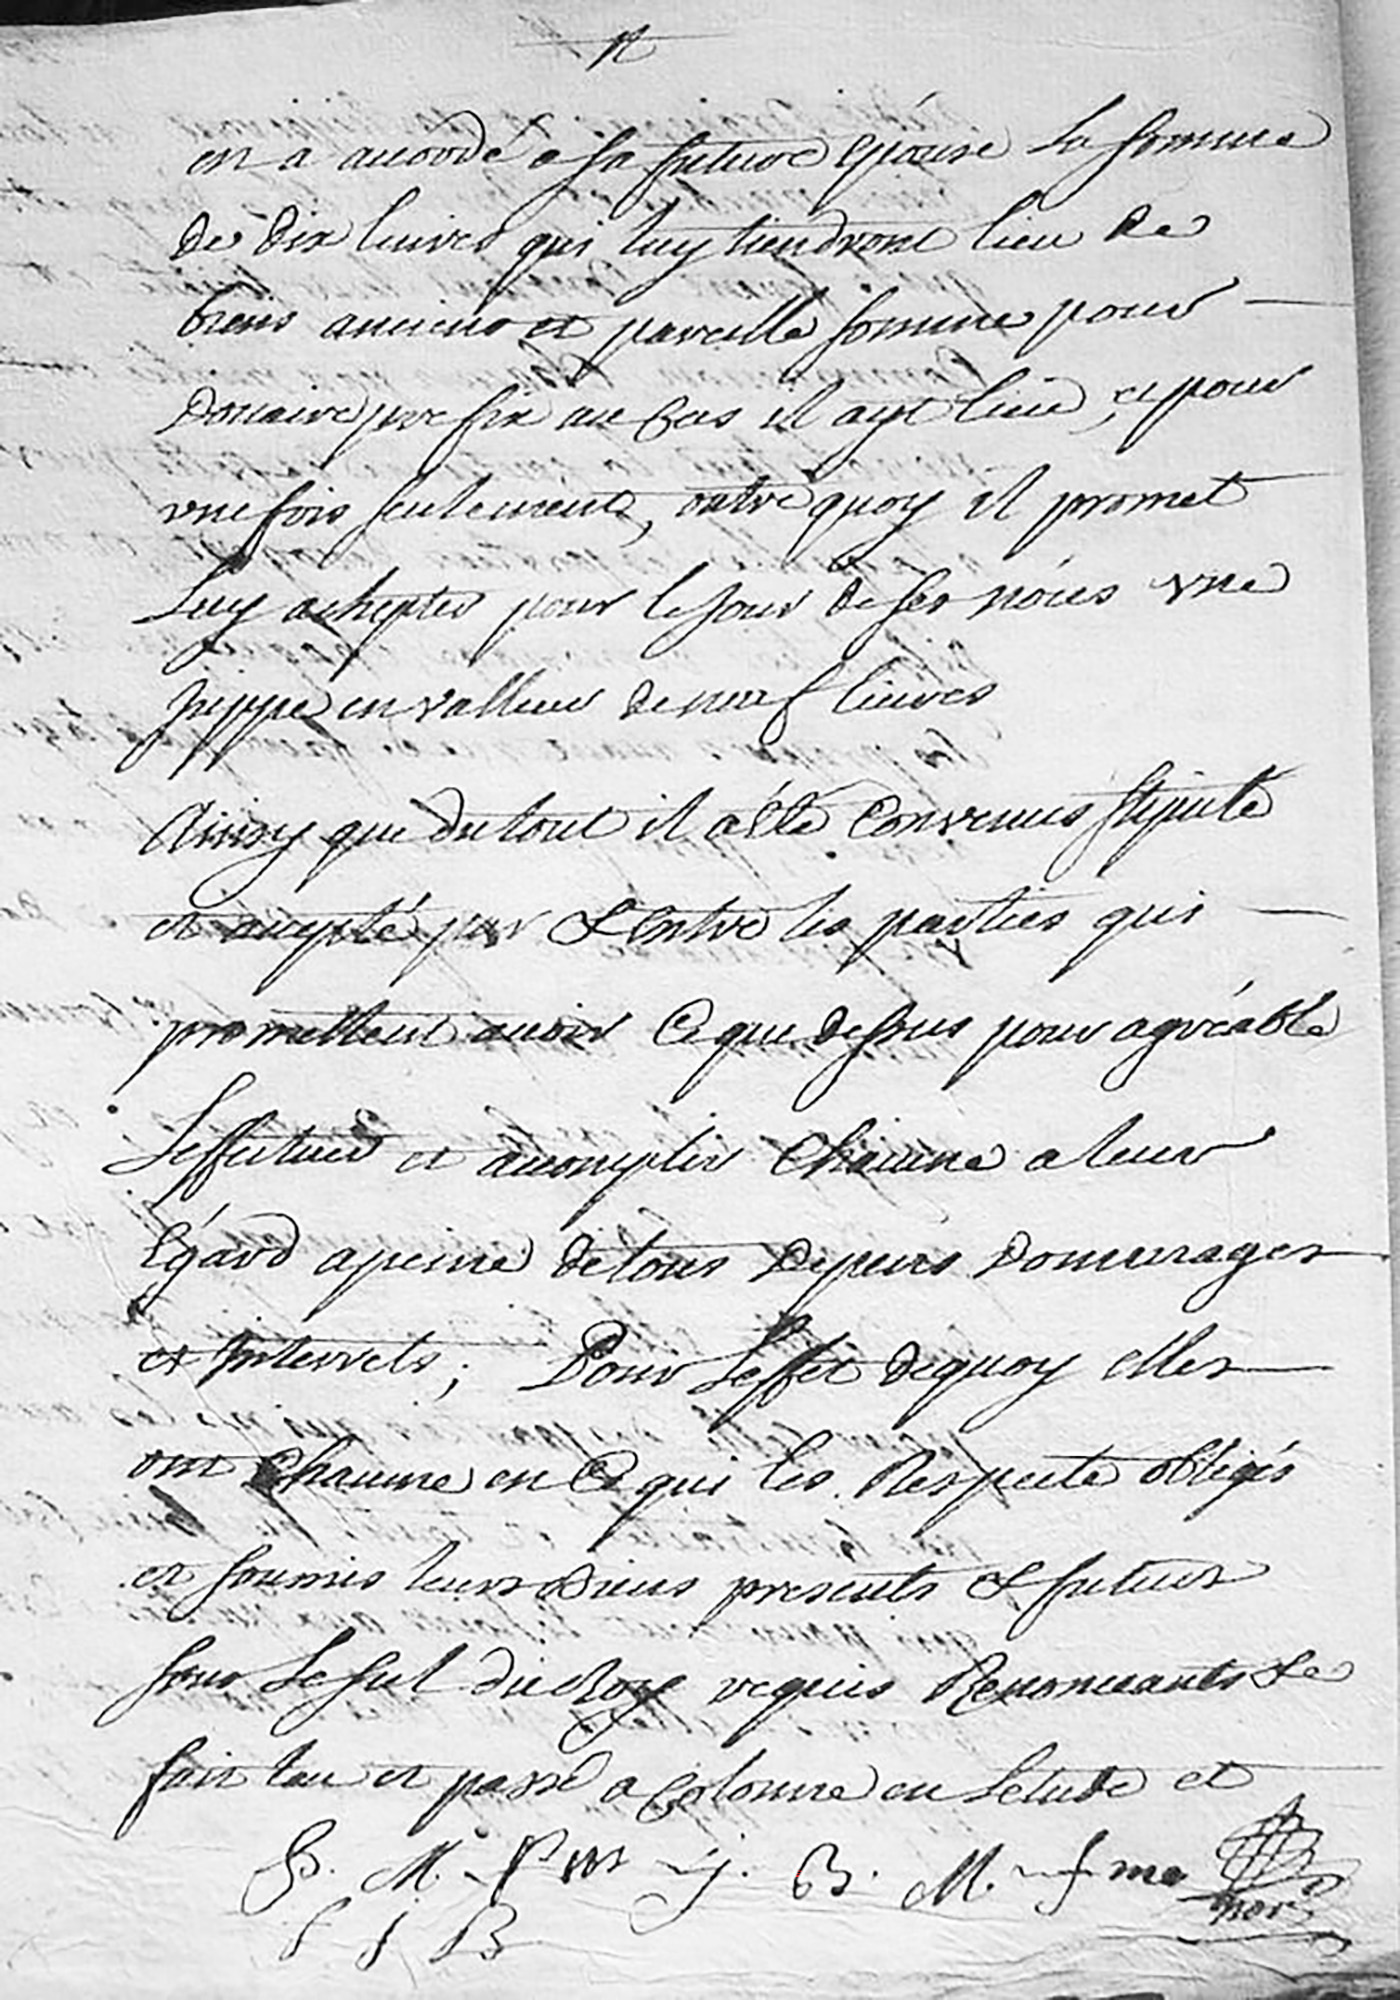 en a accordé a sa future épouse la somme
de dix livres qui luy tiendront lieu de
biens anciens et pareille somme pour
Douaire prefix au Cas il ayt lieu, et pour
vne fois seulement, outre quoy il promet
Luy achepter pour le jour de ses nóces vne
juppe en valleur de neuf livres
Ainsy que du tout il a été Convenus stipulé
et accepté par & Entre les parties qui
promettent avoir Ce que dessus pour agréable
L'effectuer et accomplir Chacune a leur
Egard a peine de tous Depens Dommages
et Interrets; Pour L'effet de quoy elles
ont Chacune en Ce qui les Respecte obligés
et soumis leurs Biens presents & futurs
sous Le scel du Roy requis Renonceants &c
fait leu et passé a Colonne en L'etude et
P. M. j. B. M.
P J B